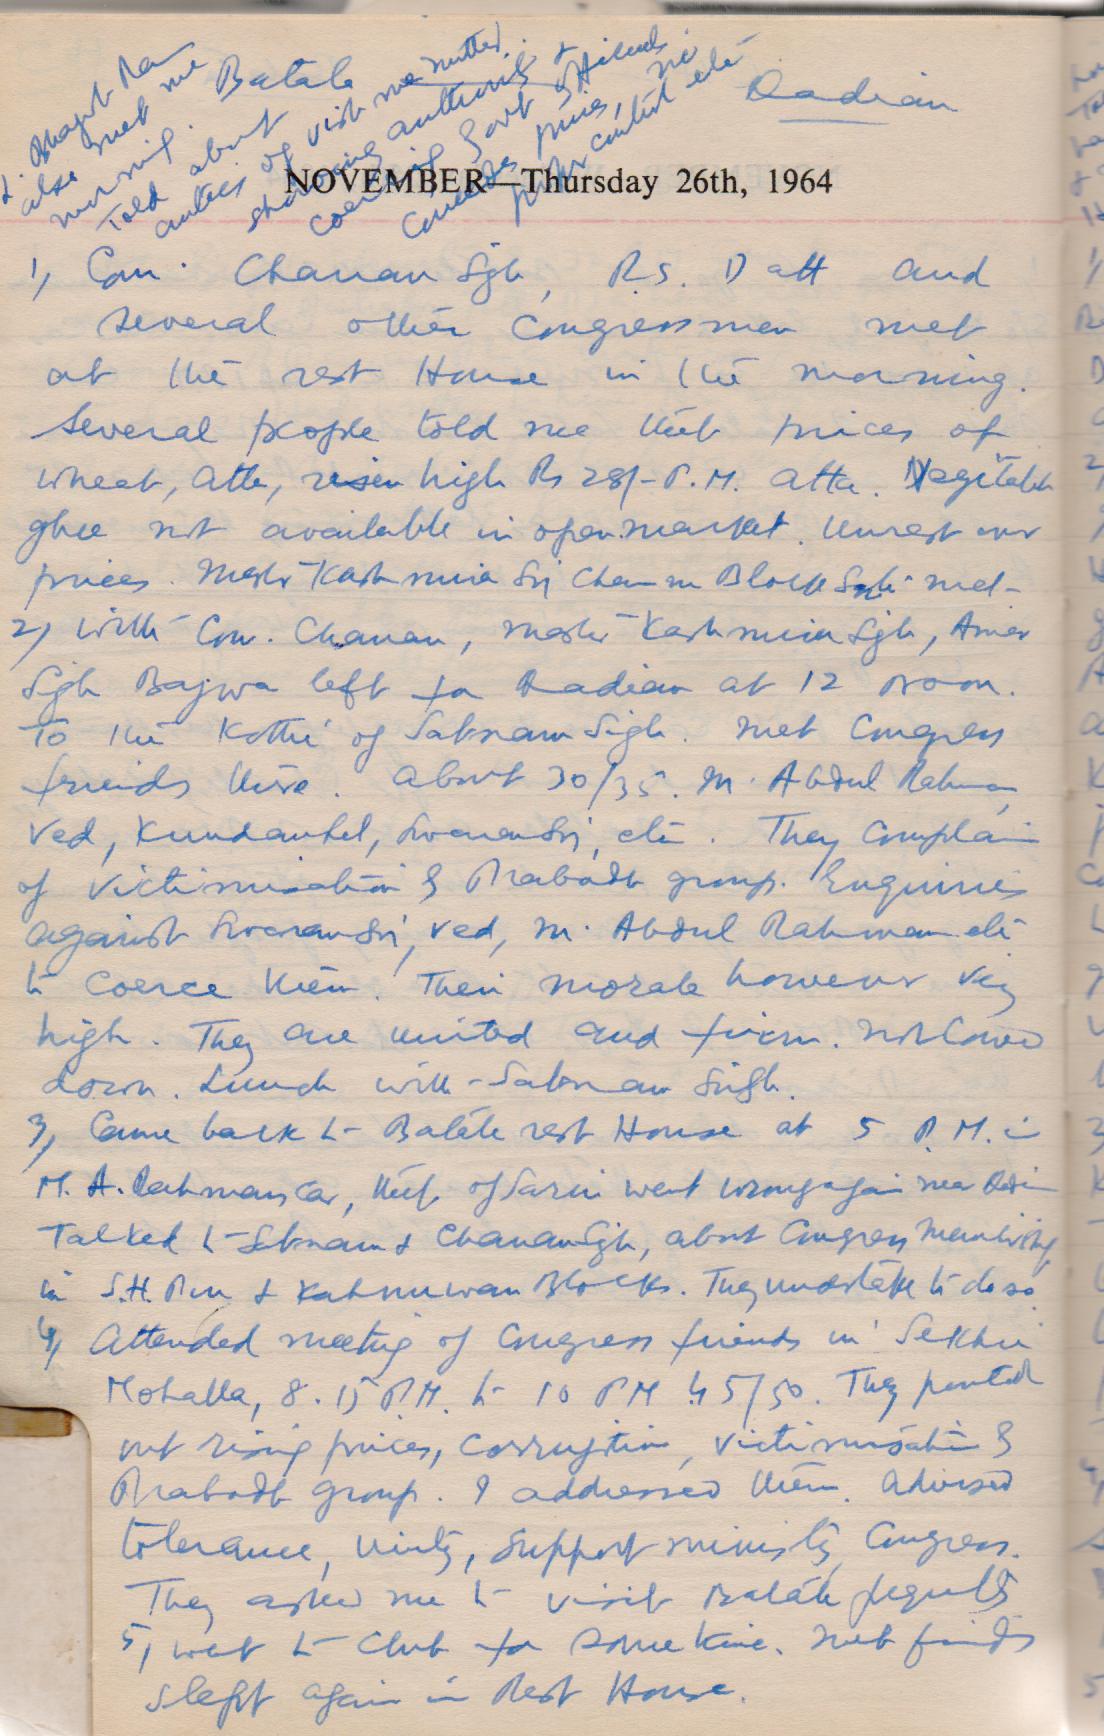 Batala
Qadian
L. Bhagat Ram
also met me
morning.
Told about
of visit
showing authority &
coercing Govt officials
prices, no
control etc
NOVEMBER—Thursday 26th, 1964
1, Com. Chanan Sgh, R.S. Datt and
several other Congressmen met
at the rest House in the morning.
Several people told me that prices of
wheat, atta, risen high Rs 28/- P.M. atta. Vegitable
ghee not available in open market. Unrest over
prices. Master Kashmira Sgh met
2, With Com. Chanan, Master Kashmira Sgh, Amar
Sgh Bajwa left for Qadian at 12 noon.
To the Kothi of Satnam Singh. Met Congress
friends there. About 30/35. M. Abdul Rahman,
Ved, Kundanlal, etc. They complain
of victimisation by Prabodh group. Enquiries
against Ved, M. Abdul Rahman etc
to coerce them. Their morale however very
high. They are united and firm. Not cowed
down. Lunch with Satnam Singh.
3, Came back to Batala rest House at 5 P.M. in
M. A. Rahmans Car, Jeep of Sarin went wrong again near Qadian
Talked to Satnam & Chanan Sgh, about Congress Membership
in S.H. Pur & Kahnuwan Blocks. They undertake to do so.
4, Attended meeting of Congress friends in Sekhri
Mohalla, 8.15 P.M. to 10 P.M. 45/50. They pointed
out rising prices, corruption, victimisation by
Prabodh group. I addressed them. Advised
tolerance, unity, support ministry, Congress.
They asked me to visit Batala regularly
5, went to Club for some time. Met friends
slept again in Rest House.